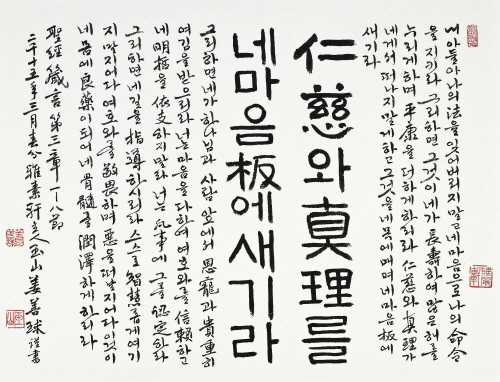 내 아들아 나의 法을 잊어버리지 말고 네 마음으로 나의 命令
을 지키라 그리하면 그것이 네가 長壽하여 많은 해를
누리게 하며 平康을 더하게 하리라 仁慈와 眞理가
네게서 떠나지 말게 하고 그것을 네 목에 매며 네 마음板에
새기라
仁慈와 眞理를
네 마음板에 새기라
그리하면 네가 하나님과 사람 앞에서 恩寵과 貴重히
여김을 받으리라 너는 마음을 다하여 여호와를 信賴하고
네 明哲을 依支하지 말라 너는 凡事에 그를 認定하라
그리하면 네 길을 指導하시리라 스스로 智慧롭게 여기
지 말지어다 여호와를 敬畏하며 惡을 떠날지어다 이것이
네 몸에 良藥이 되어 네 骨髓를 潤澤하게 하리라
聖經 箴言 第三章 一~八節
二千十五年三月春分 雅素軒主人 玉山 姜善球 謹書